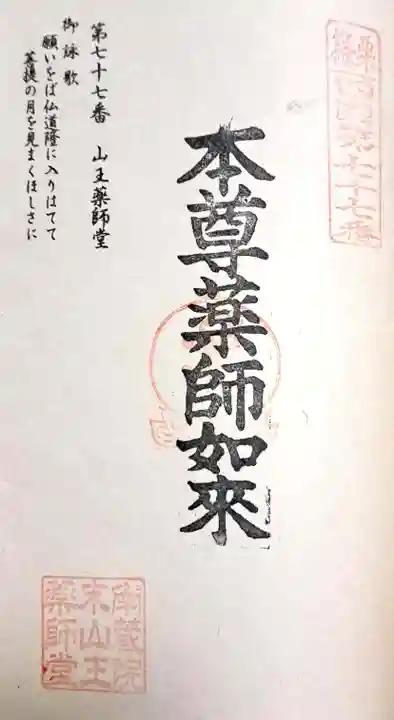 四国第七十七番
本尊薬師如來
第七十七番 山王薬師堂
御詠歌
願いをば仏道隆に入りはてて
菩提の月を見まくほしさに
蔵院
末山王
薬師堂